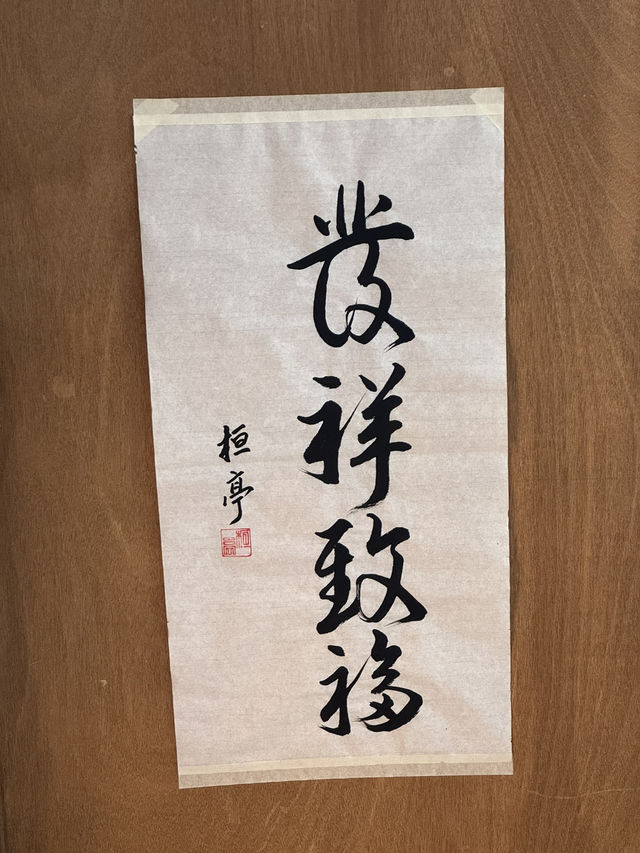 發祥致福
桓亭